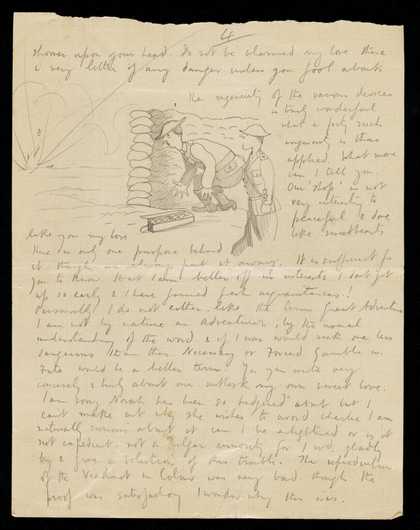 4
shower upon your head. Do not be alarmed my love there
is very little of any danger unless you fool about.
The ingenuity of the various devices
is truly wonderful
what a pity such
ingenuity is thus
applied. What more
can I tell you.
Our 'shop' is not
very interesting to
peaceful & dove
like sweethearts
like you my love
There is only one purpose behind
it though an ugly part it
It is sufficient for
you to know that I am better off in
I don't get
up so early & I have formed fresh acquaintances.
Personally I do not either like the term Great Adventure
I am not by nature an Adventurer, by the normal
understanding of the word & if I was would seek one less
dangerous than this. Necessary or Forced Gamble
Fate would be a better term. You write very
& truly about our outlook my own sweet love.
I am sorry Norah has been so badgered about but I
can't make out why she wishes to avoid Charlie I am
naturally curious about it can I be enlightened or is it
not expedient. not a vulgar curiosity for I wd. gladly
be a solution of this trouble. The reproduction
of the in Colour was very bad though the
proof was satisfactory I wonder why this was.